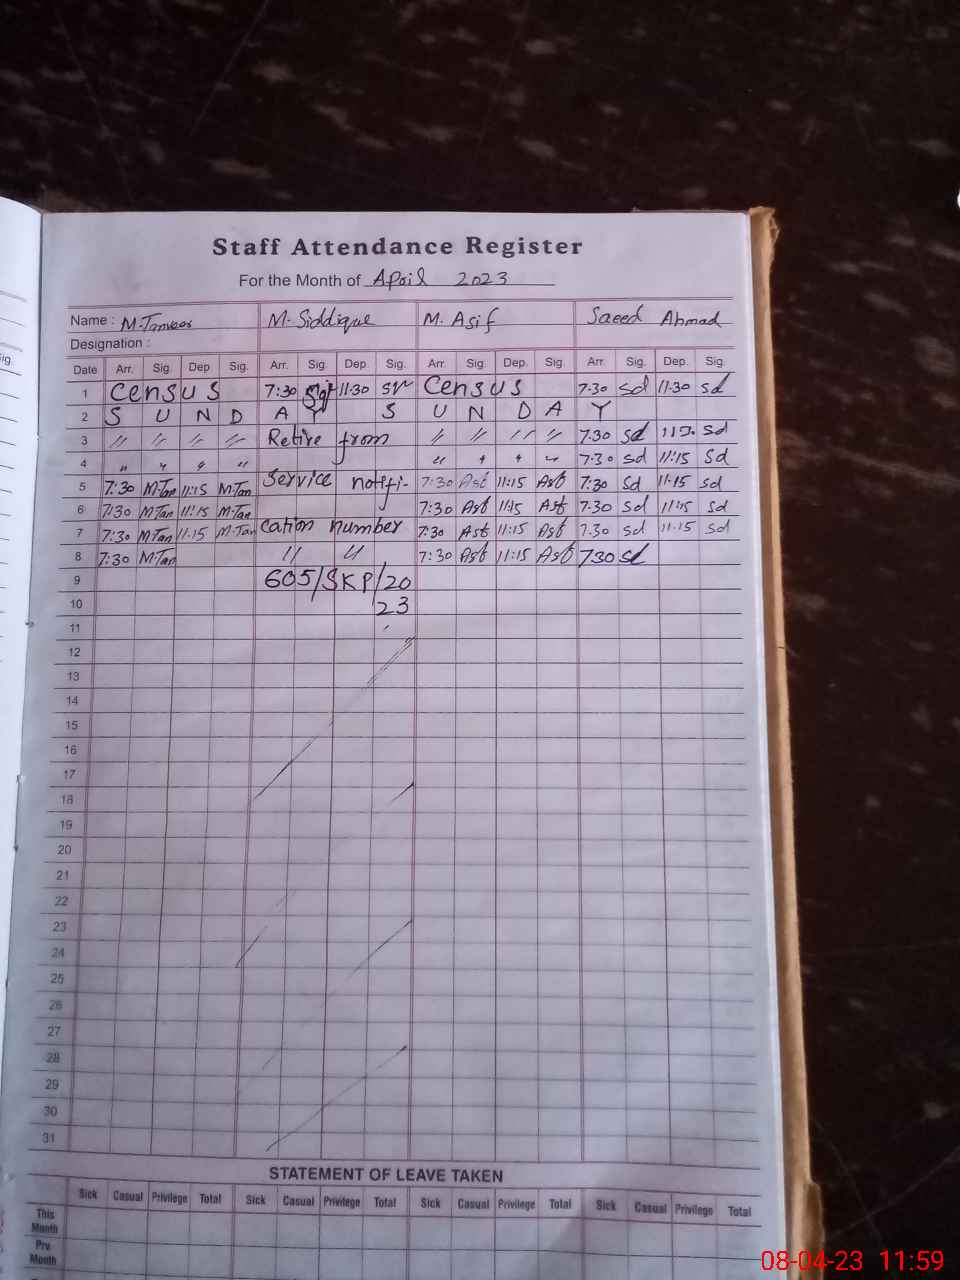 Staff Attendance Register
For the Month of April 2023
Name : M. Siddique M. Asif Saeed Ahmad
Designation :
Date Arr. Sig. Dep. Sig. Arr. Sig. Dep. Sig. Arr. Sig. Dep. Sig. Arr. Sig. Dep. Sig.
1 Census 7:30 11.30 Census 7.30 sd 11.30 sd
2 S U N D A Y S U N D A Y
3 〃 〃 〃 〃 Retire from 〃 〃 〃 〃 7.30 sd sd
4 〃 〃 〃 〃 〃 〃 〃 〃 7.30 sd 11:15 sd
5 7:30 M.Tan 11:15 M.Tan Service notifi- 7:30 Asf 11:15 Asf 7:30 sd 11.15 sd
6 7:30 M.Tan 11:15 M.Tan 7:30 Asf 11:15 Asf 7.30 sd 11:15 sd
7 7:30 M.Tan 11.15 M.Tan cation number 7:30 Asf 11:15 Asf 7.30 sd 11.15 sd
8 7:30 M.Tan 〃 〃 7:30 Asf 11:15 Asf 730 sd
9 605/SKP/20
10 23
11
12
13
14
15
16
17
18
19
20
21
22
23
24
25
26
27
28
29
30
31
STATEMENT OF LEAVE TAKEN
Sick Casual Privilege Total Sick Casual Privilege Total Sick Casual Privilege Total Sick Casual Privilege Total
This Month
Prv. Month
08-04-23 11:59